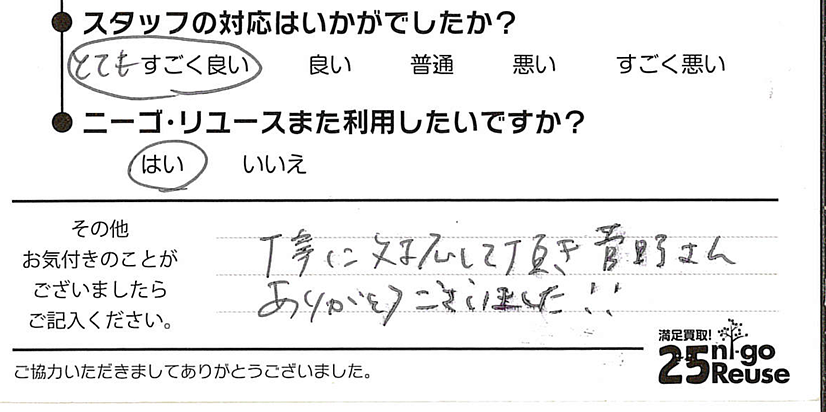 スタッフの対応はいかがでしたか？
とても すごく良い 良い 普通 悪い すごく悪い
ニーゴ・リユースまた利用したいですか？
はい いいえ
その他
お気付きのことが
ございましたら
ご記入ください。
丁寧に対応して頂き菅野さん
ありがとうございました!!
ご協力いただきましてありがとうございました。
満足買取!
25 ni-go
Reuse